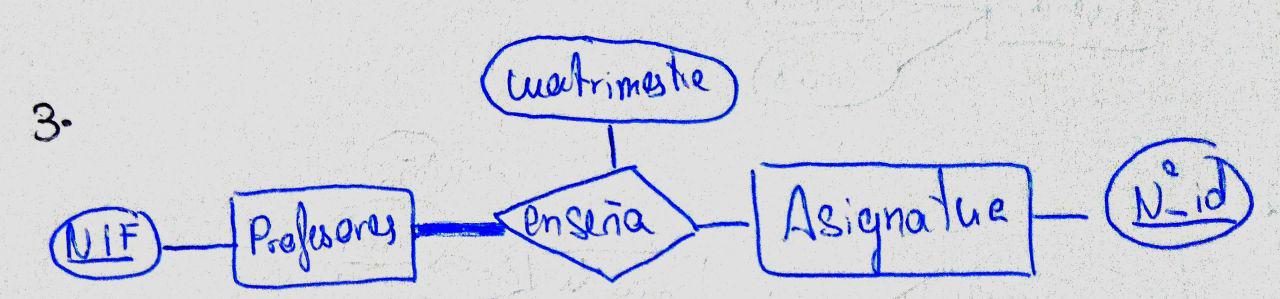 3.
cuatrimestre
NIF
Profesores
enseña
Asignatura
Nº_id